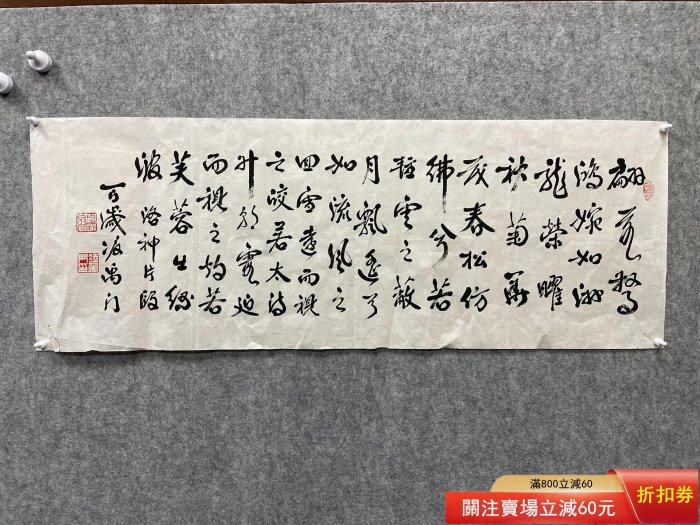 翩若驚
鴻婉如游
龍榮曜
秋菊華
茂春松仿
彿兮若
輕雲之蔽
月飄遙兮
如流風之
回雪遠而視
之皎若太陽
升朝霞迫
而視之灼若
芙蓉出綠
波 洛神片段
百歲
滿800立減60
關注賣場立減60元
折扣券